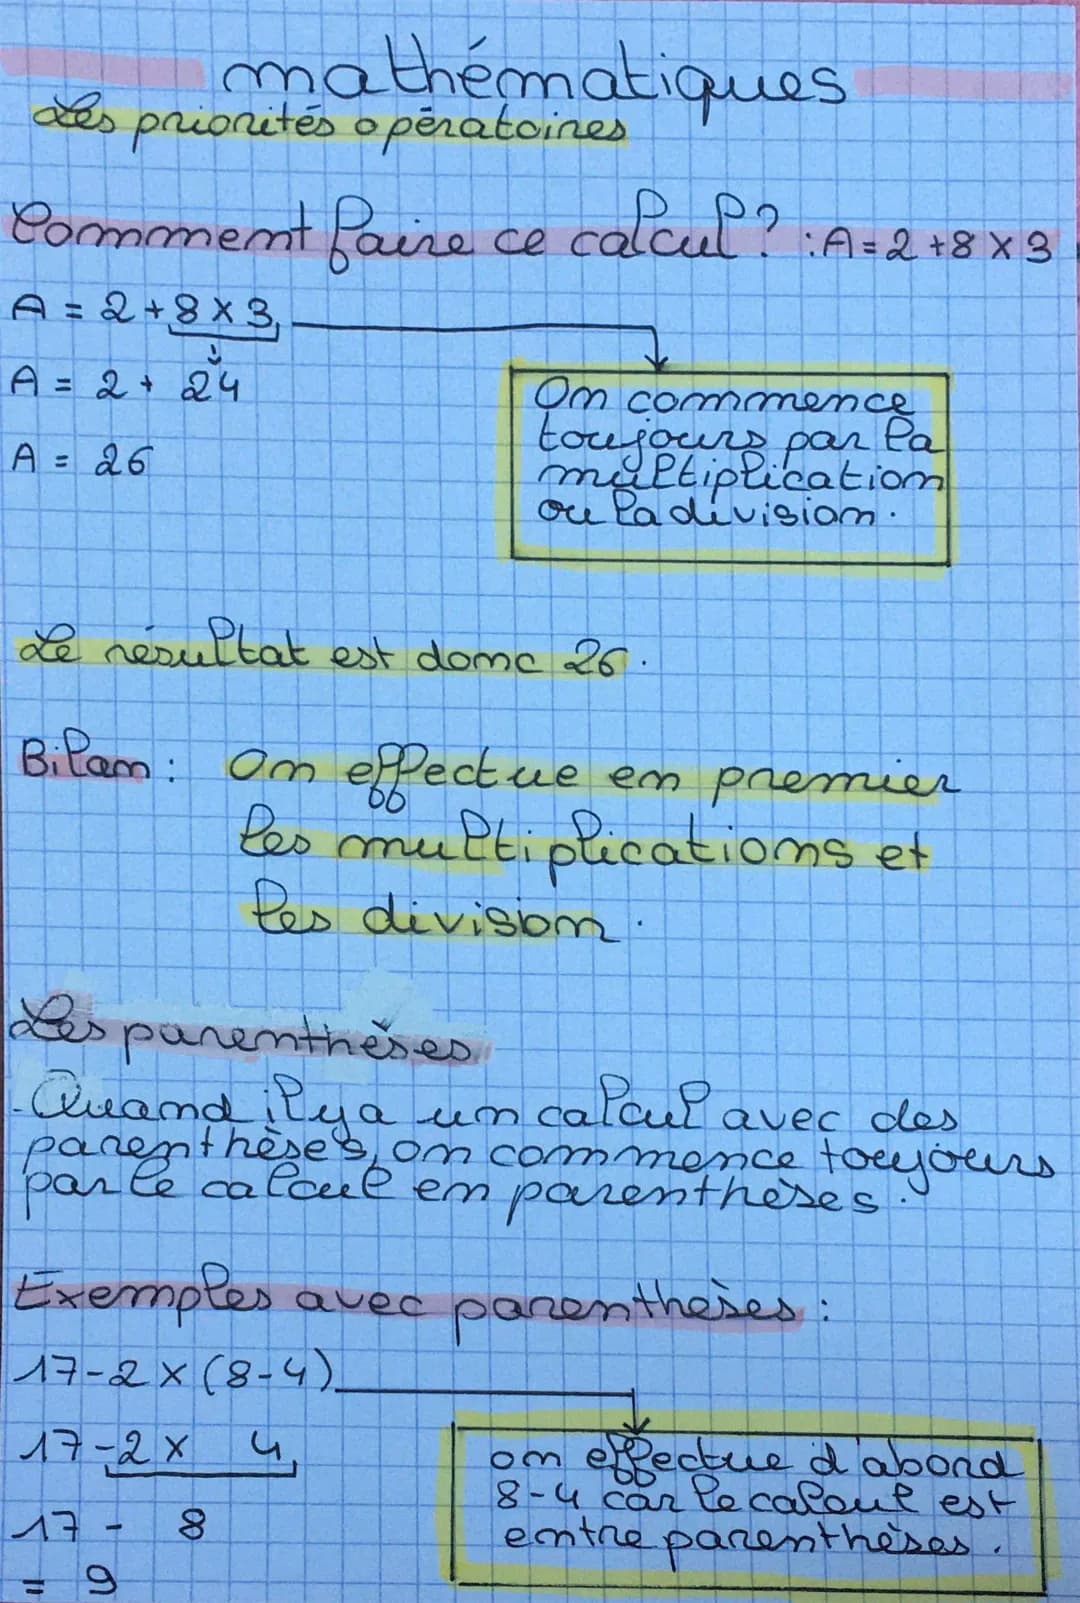 mathématiques
Les priorités opératoires
Comment faire ce calcul ? : A = 2 + 8 x 3
A = 2 + 8 x 3
A = 2 + 24
A = 26
On commence
toujours par la
multiplication
ou la division.
Le résultat est donc 26.
Bilan : On effectue en premier
les multiplications et
les division.
Les parenthèses
- Quand il y a un calcul avec des
parenthèses, on commence toujours
par le calcul en parenthèses.
Exemples avec parenthèses :
17 - 2 x (8 - 4)
17 - 2 x 4
17 - 8
= 9
on effectue d'abord
8 - 4 car le calcul est
entre parenthèses.